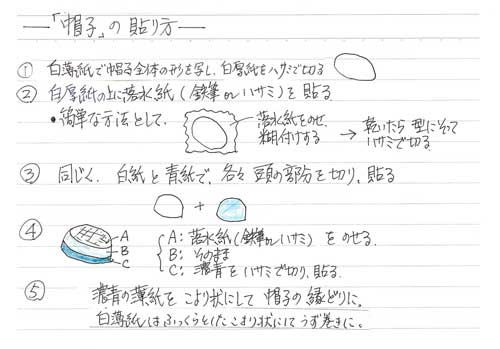 ―「帽子」の貼り方―
① 白薄紙で帽子全体の形を写し、白厚紙をハサミで切る
② 白厚紙の上に落水紙(鉄筆orハサミ)を貼る
・簡単な方法として、
落水紙をのせ、
糊付けする
→ 乾いたら型にそって
ハサミで切る。
③ 同じく、白紙と青紙で、各々頭の部分を切り、貼る
+
④
A
B
C
A: 落水紙(鉄筆orハサミ)をのせる.
B: そのまま
C: 濃青をハサミで切り、貼る.
⑤ 濃青の薬紙をこより状にして帽子の縁どりに。
白薄紙はふっくらとしたこより状にしてうず巻きに。